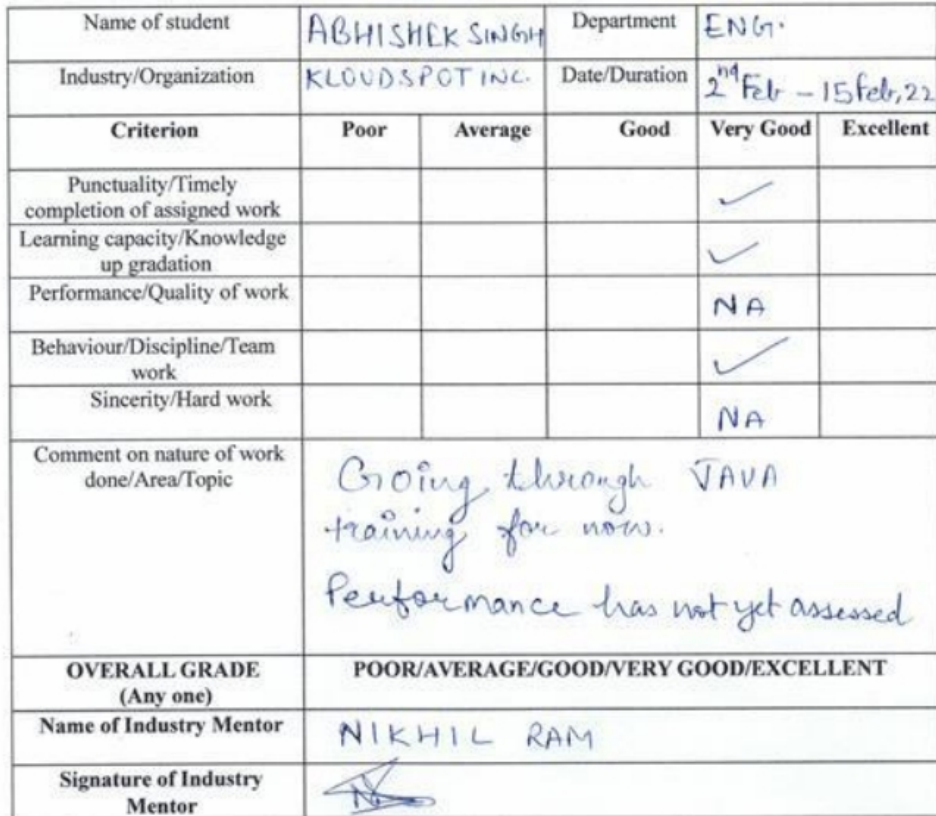 Name of student ABHISHEK SINGH Department ENG.
Industry/Organization KLOUDSPOT INC. Date/Duration 2nd Feb - 15 Feb, 22
Criterion Poor Average Good Very Good Excellent
Punctuality/Timely
completion of assigned work ✓
Learning capacity/Knowledge
up gradation ✓
Performance/Quality of work NA
Behaviour/Discipline/Team
work ✓
Sincerity/Hard work NA
Comment on nature of work
done/Area/Topic
Going through JAVA
training for now.
Performance has not yet assessed
OVERALL GRADE
(Any one)
POOR/AVERAGE/GOOD/VERY GOOD/EXCELLENT
Name of Industry Mentor NIKHIL RAM
Signature of Industry
Mentor